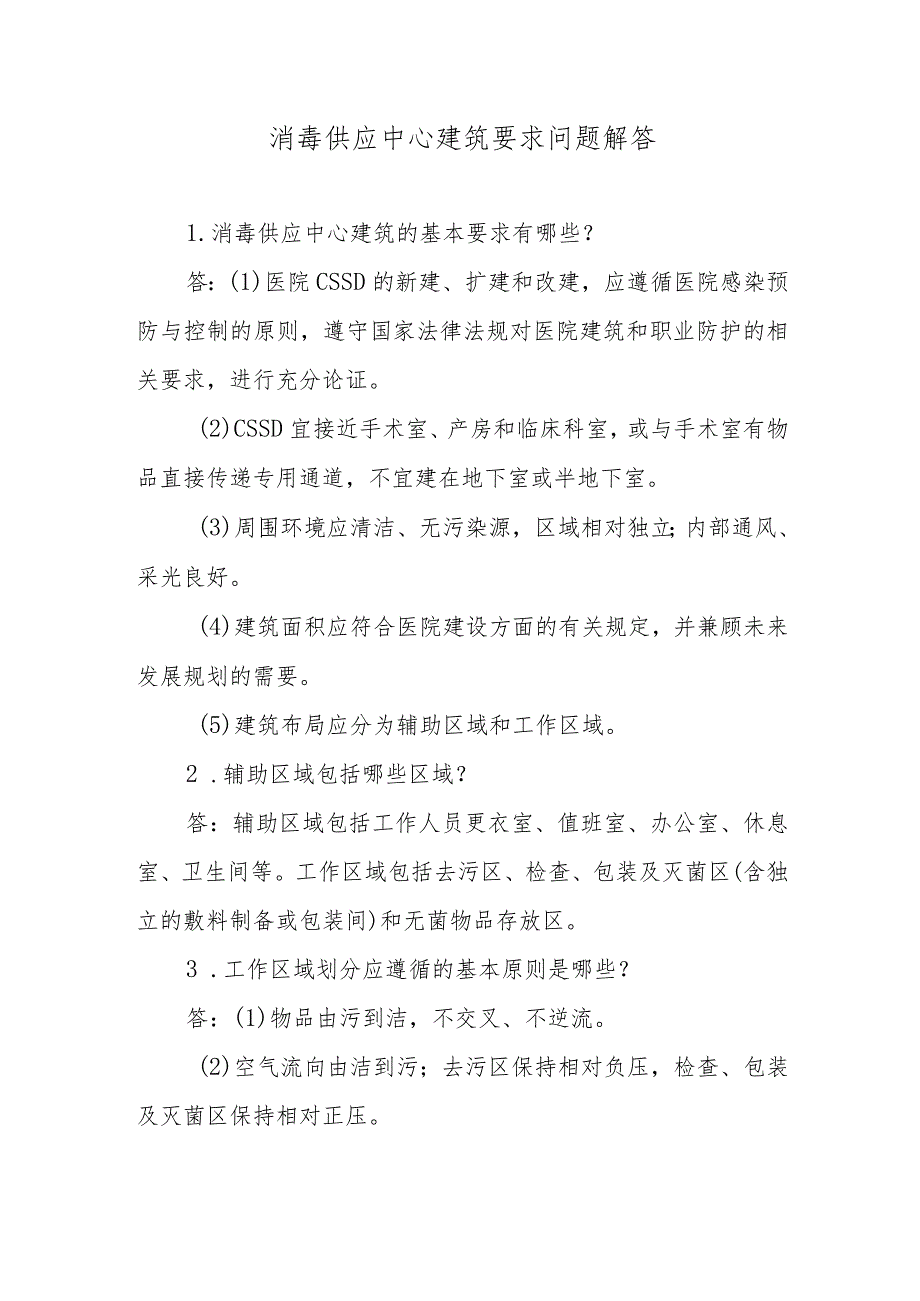 消毒供应中心建筑要求问题解答
1.消毒供应中心建筑的基本要求有哪些?
答：(1)医院CSSD的新建、扩建和改建，应遵循医院感染预
防与控制的原则，遵守国家法律法规对医院建筑和职业防护的相
关要求，进行充分论证。
(2)CSSD宜接近手术室、产房和临床科室，或与手术室有物
品直接传递专用通道，不宜建在地下室或半地下室。
(3)周围环境应清洁、无污染源，区域相对独立；内部通风、
采光良好。
(4)建筑面积应符合医院建设方面的有关规定，并兼顾未来
发展规划的需要。
(5)建筑布局应分为辅助区域和工作区域。
2 .辅助区域包括哪些区域?
答：辅助区域包括工作人员更衣室、值班室、办公室、休息
室、卫生间等。工作区域包括去污区、检查、包装及灭菌区(含独
立的敷料制备或包装间)和无菌物品存放区。
3 .工作区域划分应遵循的基本原则是哪些?
答：(1)物品由污到洁，不交叉、不逆流。
(2)空气流向由洁到污；去污区保持相对负压，检查、包装
及灭菌区保持相对正压。